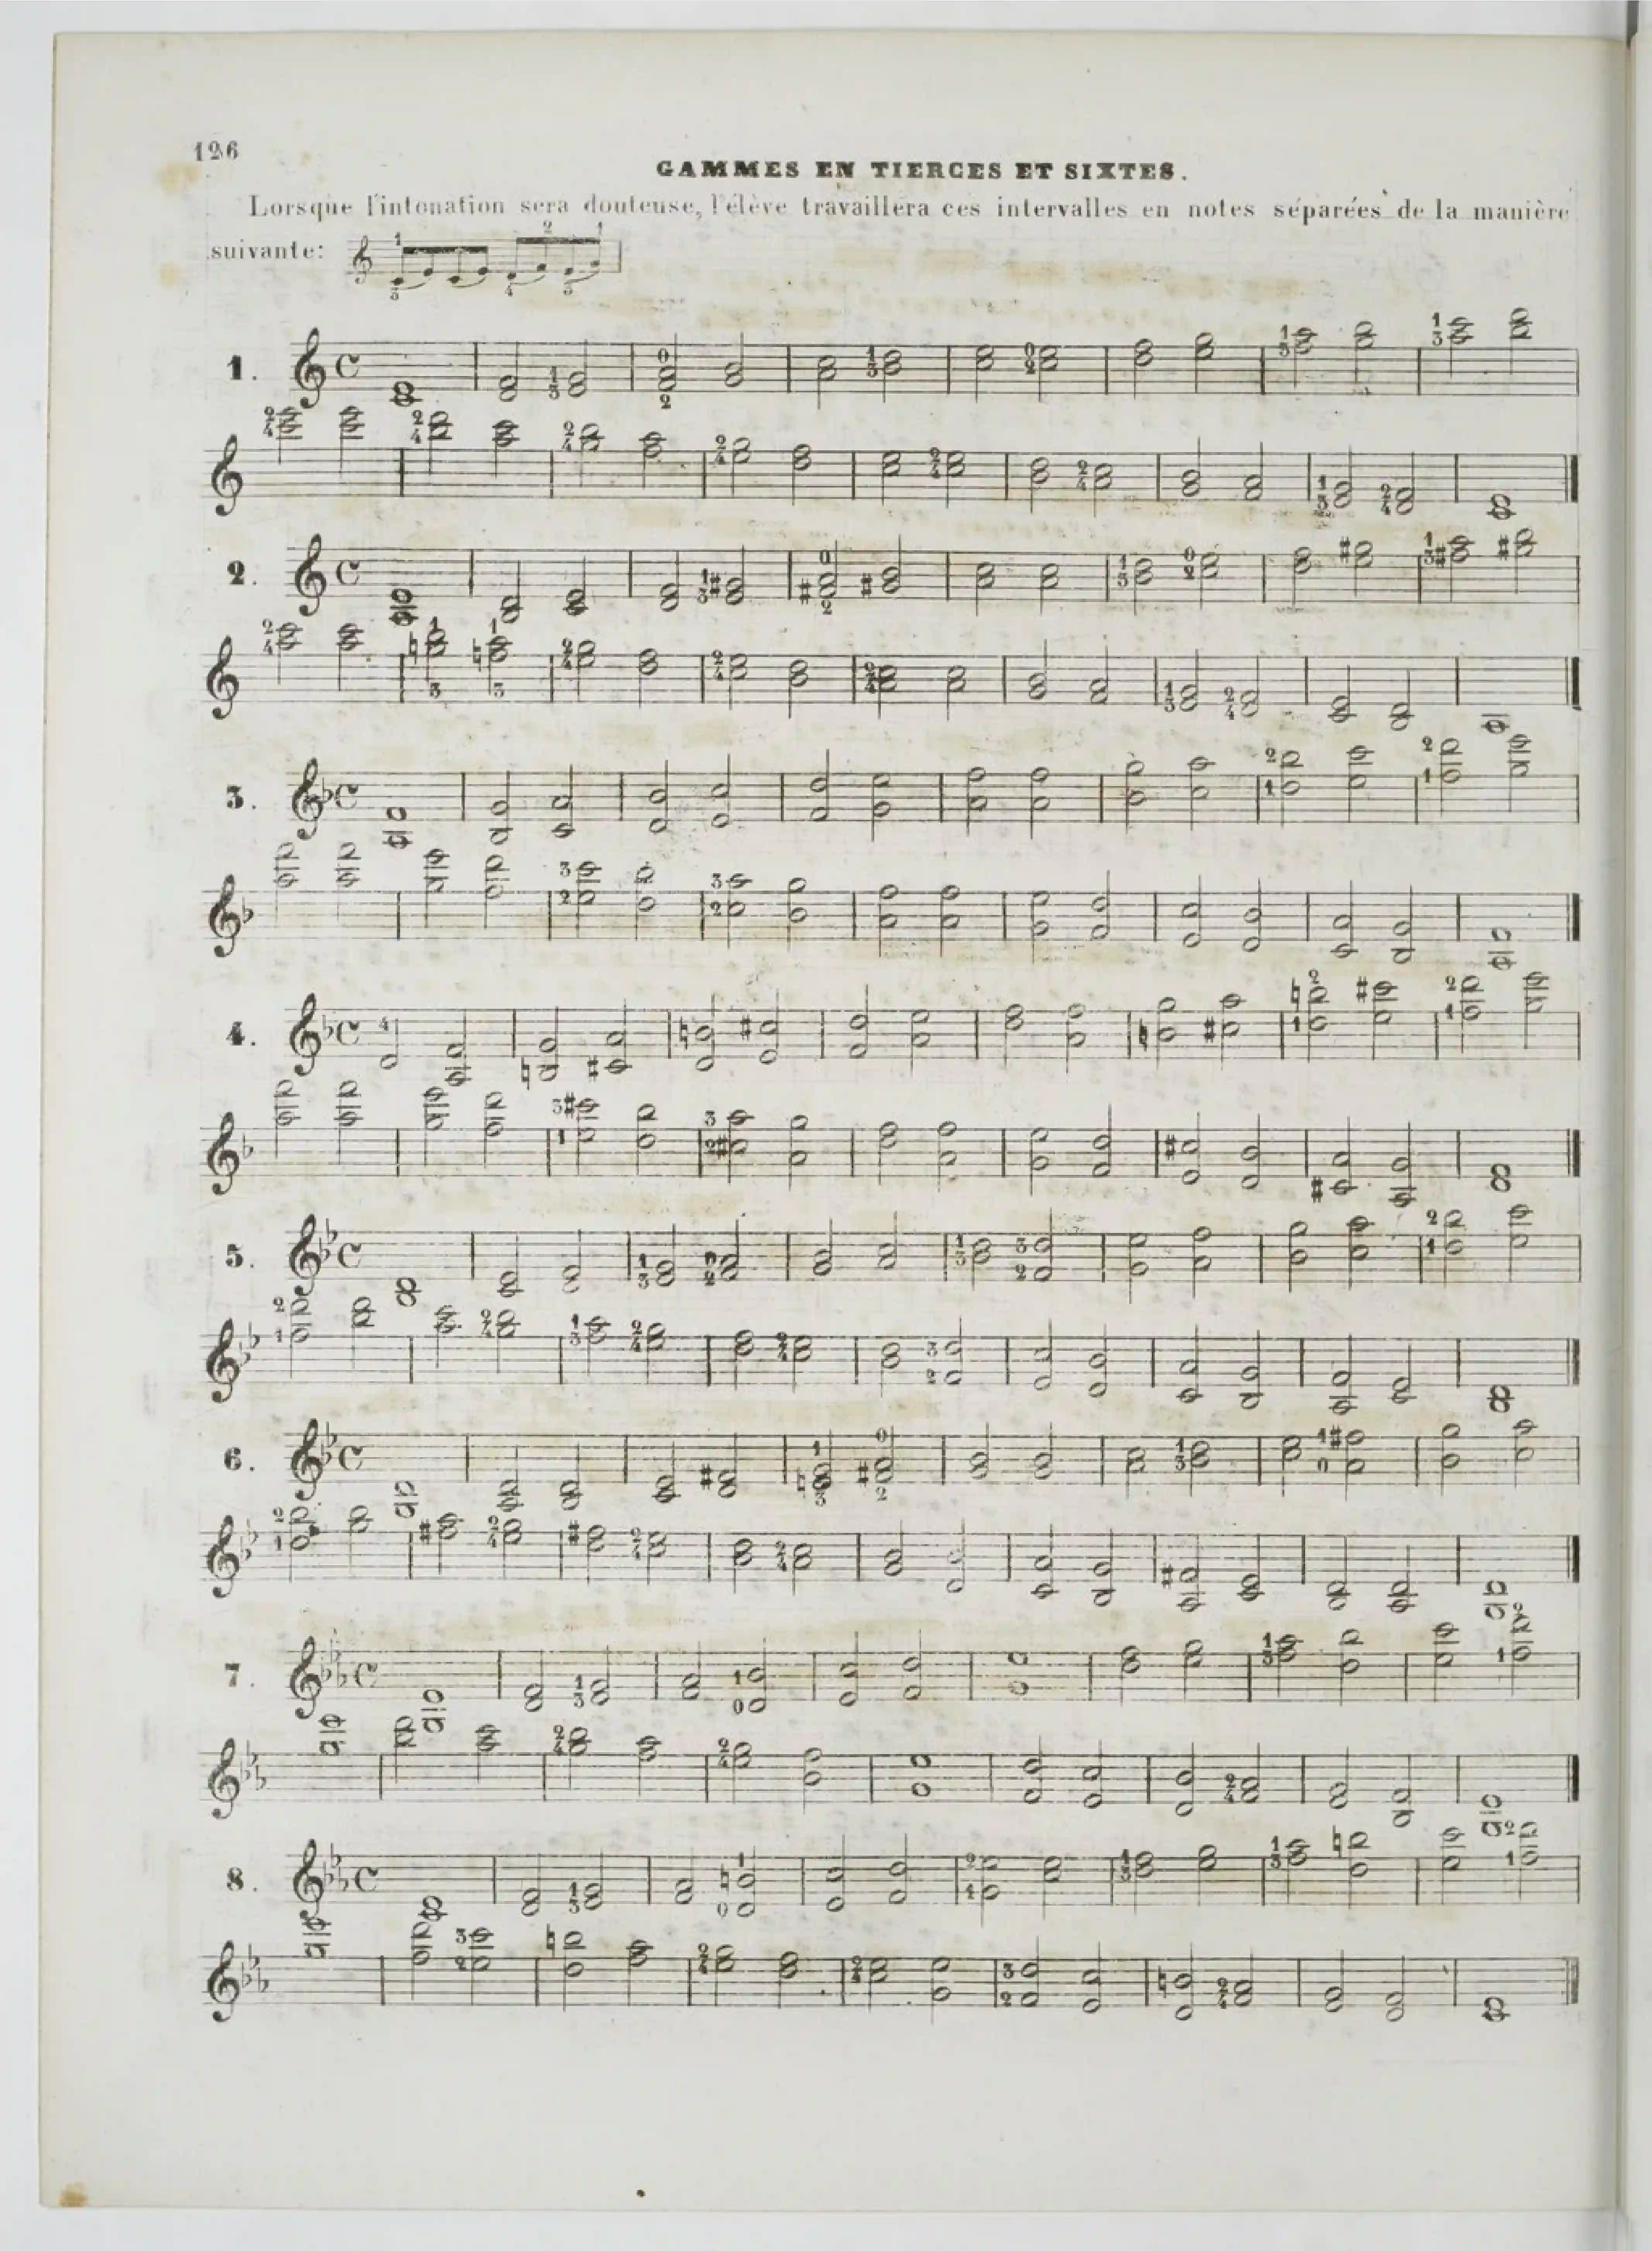 126
GAMMES EN TIERCES ET SIXTES.
Lorsque l'intonation sera douteuse, l'élève travaillera ces intervalles en notes séparées de la manière
suivante:
1.
2.
3.
4.
5.
6.
7.
8.